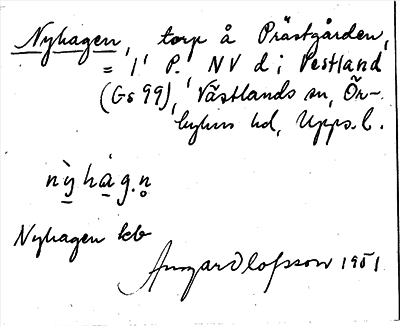 Nyhagen, torp å Prästgården,
= 1' P., NV d i Vestland
(Gs 99), Västlands sn, Ör-
byhus hd, Upps. l.
nỳhàg.n̥
Nyhagen kb
Ansgar Olofsson 1951